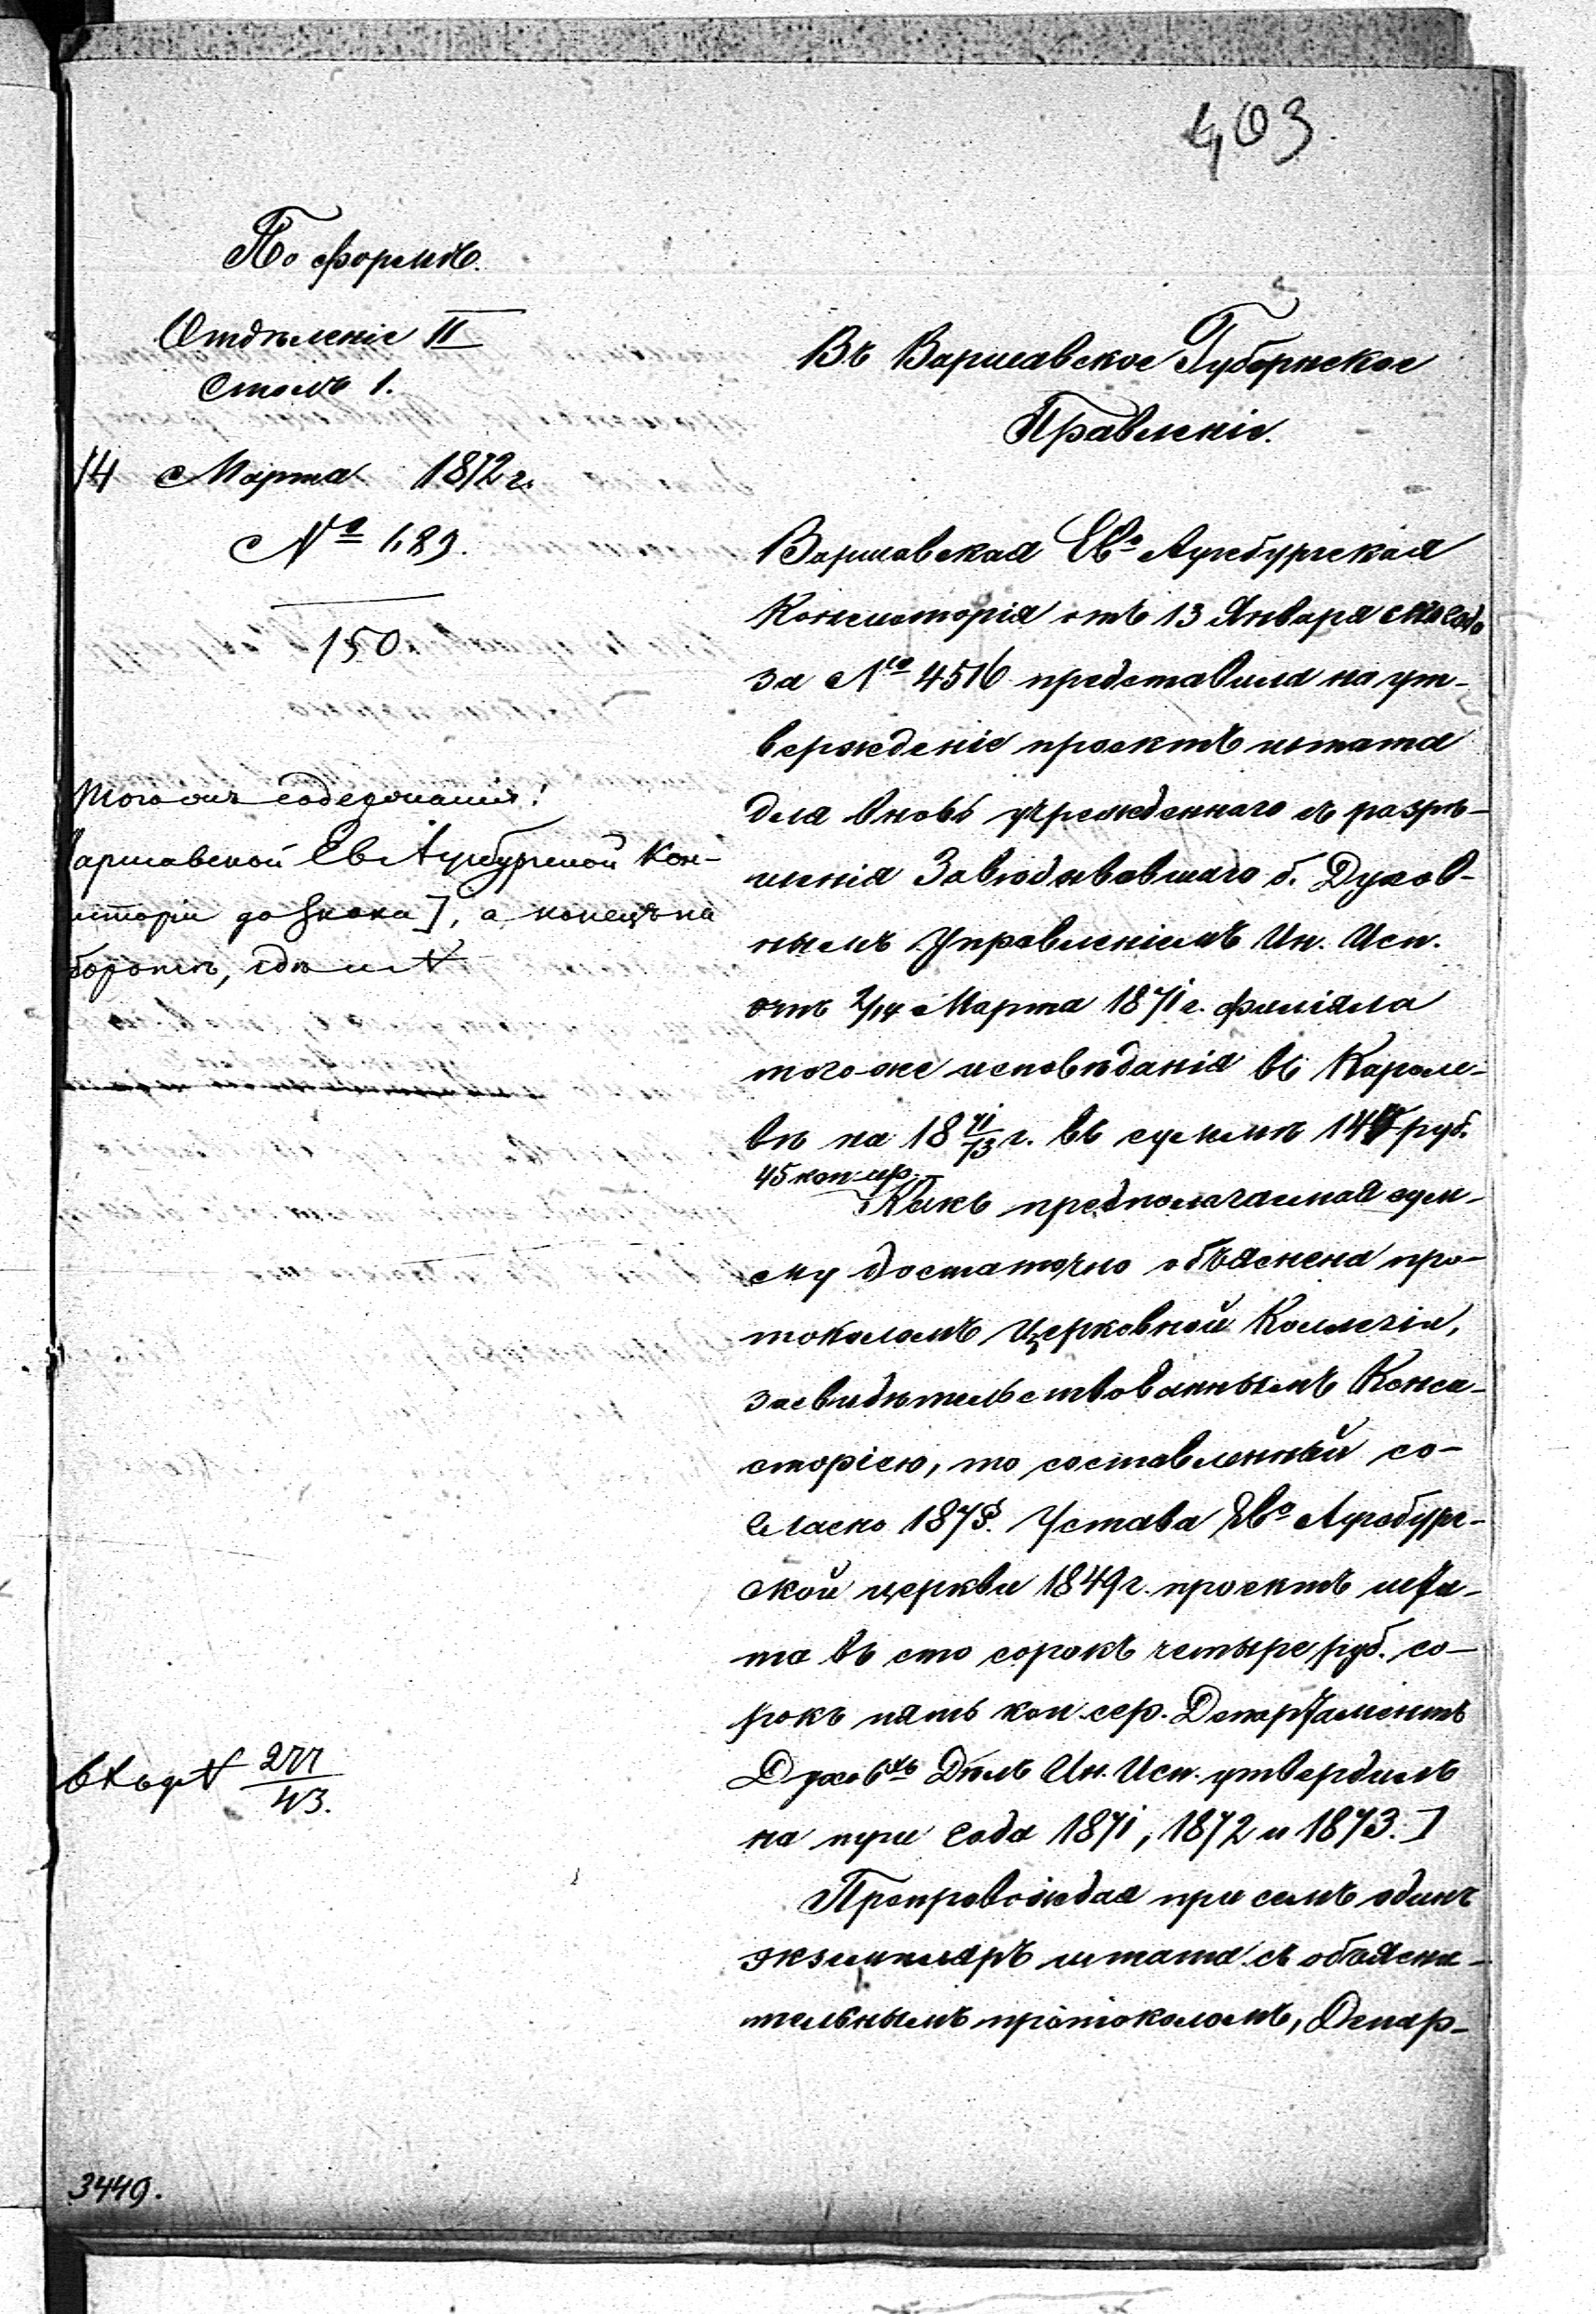 403
По формѣ.
Отдѣленіе II
Столъ 1.
14 Марта 1872 г.
№ 689.
150
Тогоже содержанія:
Варшавской Ев Аугсбургской Кон-
систоріи до знака ], а конецъ на
оборотѣ, гдѣ
вход № 277/43.
3449.
Въ Варшавское Губернское
Правленіе.
Варшавская Евᵒ Аугсбургская
Консисторія отъ 13 Января сего года
за № 4516 представила на ут-
вержденіе проектъ штата
для вновь учрежденнаго съ разрѣ-
шенія Завѣдывавшаго б. Духов-
нымъ Управленіемъ Ин. Исп.
отъ 2/14 Марта 1871 г. филіала
того же исповѣданія въ Кароле-
вѣ на 18 71/73 г. въ суммѣ 144 руб.
45 коп. ср.
Какъ предполагаемая сум-
му достаточно объяснена про-
токоломъ Церковной Коллегіи,
засвидѣтельствованнымъ Конси-
сторіею, то составленный со-
гласно 187 §. Устава Евᵒ Аугсбург-
ской церкви 1849 г. проектъ шта-
та въ сто сорокъ четыре руб. со-
рокъ пять коп. сер. Департаментъ
Духовыхъ Дѣлъ Ин. Исп. утвердилъ
на три года 1871, 1872 и 1873. ]
Препровождая при семъ одинъ
экземпляръ штата съ объясни-
тельнымъ протоколомъ, Депар-